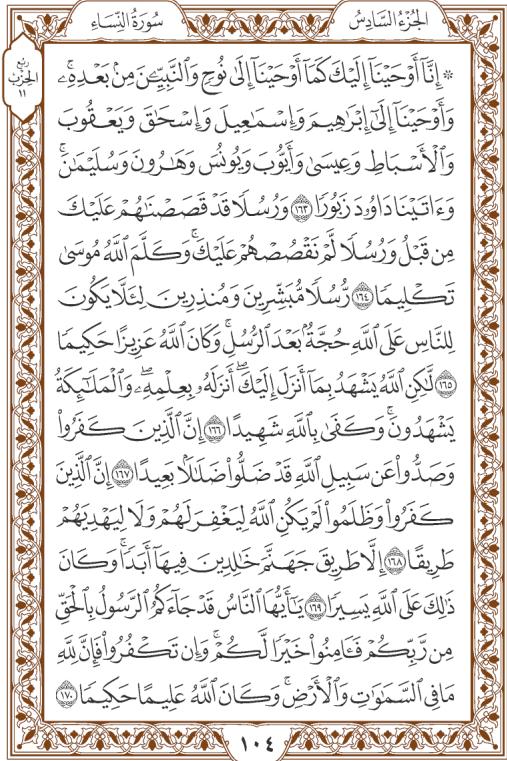 الجُزْءُ السَّادِسُ
سُورَةُ النِّسَاءِ
رُبع
الحِزْب
١١
۞ إِنَّآ أَوْحَيْنَآ إِلَيْكَ كَمَآ أَوْحَيْنَآ إِلَىٰ نُوحٍ وَٱلنَّبِيِّـۧنَ مِنۢ بَعْدِهِۦۚ
وَأَوْحَيْنَآ إِلَىٰٓ إِبْرَٰهِيمَ وَإِسْمَٰعِيلَ وَإِسْحَٰقَ وَيَعْقُوبَ
وَٱلْأَسْبَاطِ وَعِيسَىٰ وَأَيُّوبَ وَيُونُسَ وَهَٰرُونَ وَسُلَيْمَٰنَۚ
وَءَاتَيْنَا دَاوُۥدَ زَبُورًا ١٦٣ وَرُسُلًا قَدْ قَصَصْنَٰهُمْ عَلَيْكَ
مِن قَبْلُ وَرُسُلًا لَّمْ نَقْصُصْهُمْ عَلَيْكَۚ وَكَلَّمَ ٱللَّهُ مُوسَىٰ
تَكْلِيمًا ١٦٤ رُّسُلًا مُّبَشِّرِينَ وَمُنذِرِينَ لِئَلَّا يَكُونَ
لِلنَّاسِ عَلَى ٱللَّهِ حُجَّةٌۢ بَعْدَ ٱلرُّسُلِۚ وَكَانَ ٱللَّهُ عَزِيزًا حَكِيمًا
١٦٥ لَّٰكِنِ ٱللَّهُ يَشْهَدُ بِمَآ أَنزَلَ إِلَيْكَۖ أَنزَلَهُۥ بِعِلْمِهِۦۖ وَٱلْمَلَٰٓئِكَةُ
يَشْهَدُونَۚ وَكَفَىٰ بِٱللَّهِ شَهِيدًا ١٦٦ إِنَّ ٱلَّذِينَ كَفَرُوا۟
وَصَدُّوا۟ عَن سَبِيلِ ٱللَّهِ قَدْ ضَلُّوا۟ ضَلَٰلًۢا بَعِيدًا ١٦٧ إِنَّ ٱلَّذِينَ
كَفَرُوا۟ وَظَلَمُوا۟ لَمْ يَكُنِ ٱللَّهُ لِيَغْفِرَ لَهُمْ وَلَا لِيَهْدِيَهُمْ
طَرِيقًا ١٦٨ إِلَّا طَرِيقَ جَهَنَّمَ خَٰلِدِينَ فِيهَآ أَبَدًاۚ وَكَانَ
ذَٰلِكَ عَلَى ٱللَّهِ يَسِيرًا ١٦٩ يَٰٓأَيُّهَا ٱلنَّاسُ قَدْ جَآءَكُمُ ٱلرَّسُولُ بِٱلْحَقِّ
مِن رَّبِّكُمْ فَـَٔامِنُوا۟ خَيْرًا لَّكُمْۚ وَإِن تَكْفُرُوا۟ فَإِنَّ لِلَّهِ
مَا فِي ٱلسَّمَٰوَٰتِ وَٱلْأَرْضِۚ وَكَانَ ٱللَّهُ عَلِيمًا حَكِيمًا ١٧٠
١٠٤